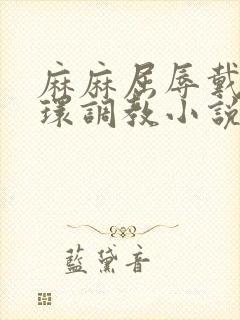 麻麻屈辱戴
環調教小說
藍黛音